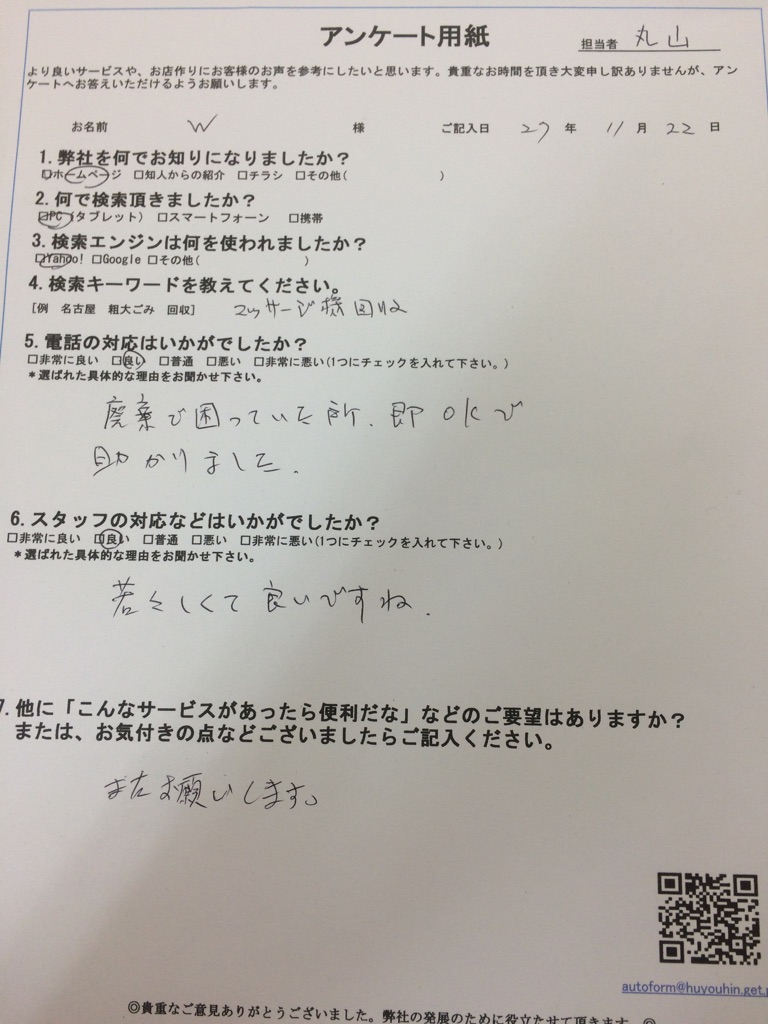 アンケート用紙
担当者 丸山
より良いサービスや、お店作りにお客様のお声を参考にしたいと思います。貴重なお時間を頂き大変申し訳ありませんが、アン
ケートへお答えいただけるようお願いします。
お名前 W 様 ご記入日 27 年 11 月 22 日
1. 弊社を何でお知りになりましたか？
□ホームページ □知人からの紹介 □チラシ □その他( )
2. 何で検索頂きましたか？
□PC（タブレット） □スマートフォーン □携帯
3. 検索エンジンは何を使われましたか？
□Yahoo! □Google □その他( )
4. 検索キーワードを教えてください。
[例 名古屋 粗大ごみ 回収] マッサージ機回収
5. 電話の対応はいかがでしたか？
□非常に良い □良い □普通 □悪い □非常に悪い(1つにチェックを入れて下さい。)
＊選ばれた具体的な理由をお聞かせ下さい。
廃棄で困っていた所、即OKで
助かりました.
6. スタッフの対応などはいかがでしたか？
□非常に良い □良い □普通 □悪い □非常に悪い(1つにチェックを入れて下さい。)
＊選ばれた具体的な理由をお聞かせ下さい。
若々しくて良いですね.
7. 他に「こんなサービスがあったら便利だな」などのご要望はありますか？
または、お気付きの点などございましたらご記入ください。
またお願いします。
autoform@huyouhin.get.
◎貴重なご意見ありがとうございました。弊社の発展のために役立たせて頂きます。◎